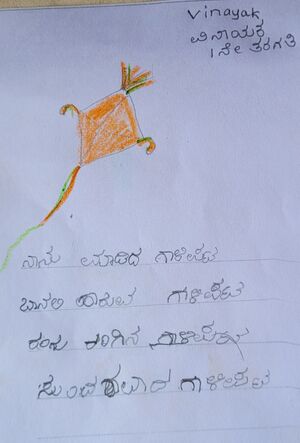 Vinayak
ವಿನಾಯಕ
1ನೇ ತರಗತಿ
ನಾನು ಮಾಡಿದ ಗಾಳಿಪಟ
ಬಾನಲಿ ಹಾರುವ ಗಾಳಿಪಟ
ರಂಗು ರಂಗಿನ ಗಾಳಿಪಟ
ಸುಂದರವಾದ ಗಾಳೀಪಟ